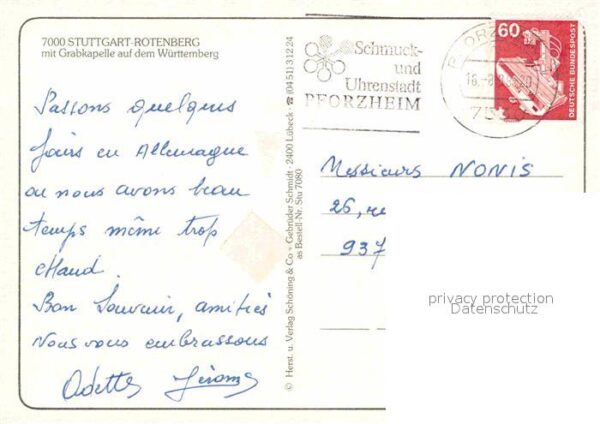 7000 STUTTGART-ROTENBERG
mit Grabkapelle auf dem Württemberg
Passons quelques
jours en Allemagne
ou nous avons beau
temps même trop
chaud.
Bon Souvenir, amitiés
Nous vous embrassons
Odette Jérome
© Herst. u. Verlag Schöning & Co + Gebrüder Schmidt · 2400 Lübeck · ☎ (04 51) 3 12 24
as Bestell-Nr. Stu 7080
Schmuck-
und
Uhrenstadt
PFORZHEIM
PFORZ
75
60
DEUTSCHE BUNDESPOST
Messieurs NONIS
26,
937
privacy protection
Datenschutz